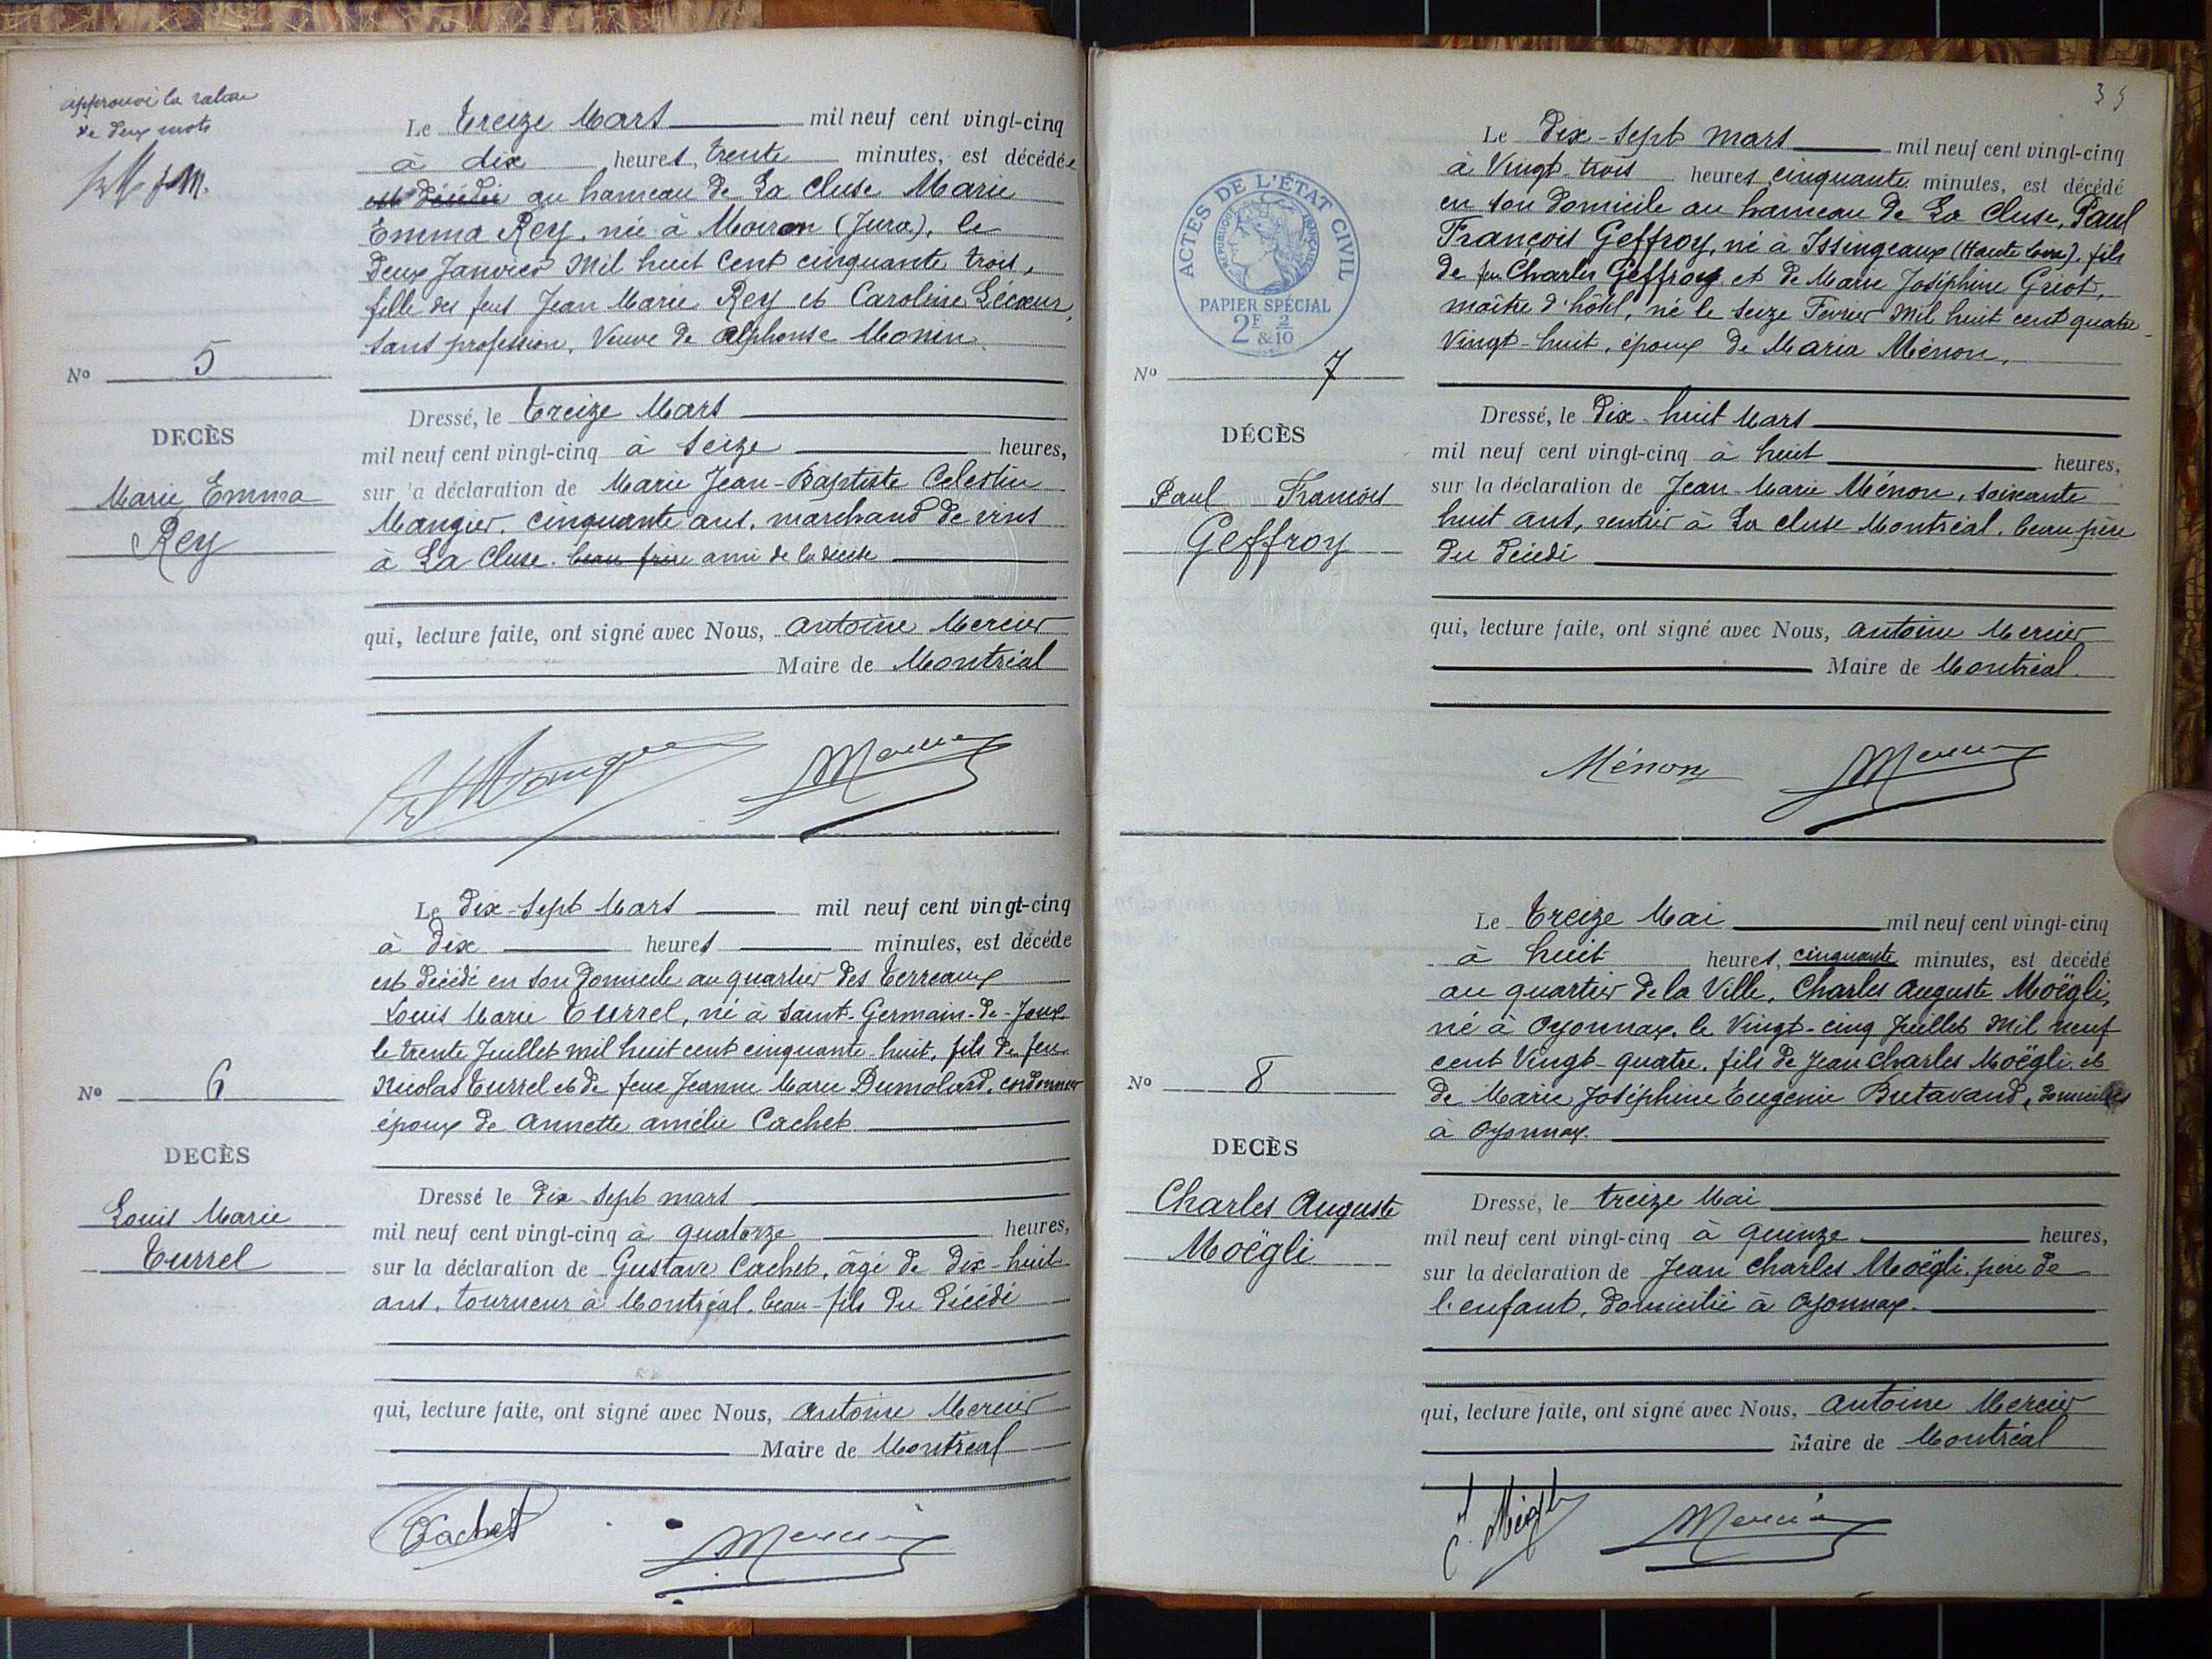 approuvé la rature
de deux mots
Le Treize Mars mil neuf cent vingt-cinq
à dix heures, trente minutes, est décédée
est décédée au hameau de La Cluse Marie
Emma Rey, née à Moiron (Jura), le
deux Janvier Mil huit Cent cinquante trois,
fille des feus Jean Marie Rey et Caroline Lécœur,
sans profession, Veuve de Alphonse Monin.
Nº 5
DECÈS
Marie Emma
Rey
Dressé, le Treize Mars
mil neuf cent vingt-cinq à Seize heures,
sur 'a déclaration de Marie Jean-Baptiste Celestin
Mangier, cinquante ans, marchand de vins
à La Cluse. beau frère ami de la décédée
qui, lecture faite, ont signé avec Nous, Antoine Mercier
Maire de Montréal
Mercier
Le Dix-Sept Mars mil neuf cent vingt-cinq
à Dix heures minutes, est décédé
est décédé en son domicile au quartier des Terreaux
Louis Marie Turrel, né à Saint-Germain-de-Joux
le trente Juillet mil huit cent cinquante-huit, fils de feu
Nicolas Turrel et de feue Jeanne Marie Dumolard, cordonnier
époux de Annette amélie Cachet.
Nº 6
DECÈS
Louis Marie
Turrel
Dressé le Dix-Sept mars
mil neuf cent vingt-cinq à quatorze heures,
sur la déclaration de Gustave Cachet, âgé de dix-huit
ans, tourneur à Montréal, beau-fils du décédé
qui, lecture faite, ont signé avec Nous, Antoine Mercier
Maire de Montréal
Cachet
Mercier
35
Le Dix-Sept Mars mil neuf cent vingt-cinq
à Vingt-trois heures cinquante minutes, est décédé
en son domicile au hameau de La Cluse, Paul
François Geffroy, né à Issingeaux (Haute Loire), fils
de feu Charles Geffroy et de Marie Joséphine Griot,
maître d'hôtel, né le seize Février Mil huit cent quatre
Vingt-huit, époux de Maria Ménon,
ACTES DE L'ÉTAT CIVIL
RÉPUBLIQUE FRANÇAISE
PAPIER SPÉCIAL
2F & 2/10
Nº 7
DÉCÈS
Paul François
Geffroy
Dressé, le Dix-huit Mars
mil neuf cent vingt-cinq à huit heures,
sur la déclaration de Jean-Marie Ménon, soixante
huit ans, rentier à La Cluse Montréal, beau père
du décédé
qui, lecture faite, ont signé avec Nous, Antoine Mercier
Maire de Montréal.
Ménon
Mercier
Le Treize Mai mil neuf cent vingt-cinq
à huit heures, cinquante minutes, est décédé
au quartier de la Ville, Charles Auguste Moëgli,
né à Oyonnax, le Vingt-cinq Juillet Mil neuf
cent Vingt-quatre, fils de Jean Charles Moëgli et
de Marie Joséphine Eugénie Bretavand, domiciliés
à Oyonnax.
Nº 8
DECÈS
Charles Auguste
Moëgli
Dressé, le treize Mai
mil neuf cent vingt-cinq à quinze heures,
sur la déclaration de Jean Charles Moëgli, père de
l'enfant, domicilié à Oyonnax.
qui, lecture faite, ont signé avec Nous, Antoine Mercier
Maire de Montréal
C. Mœgli
Mercier